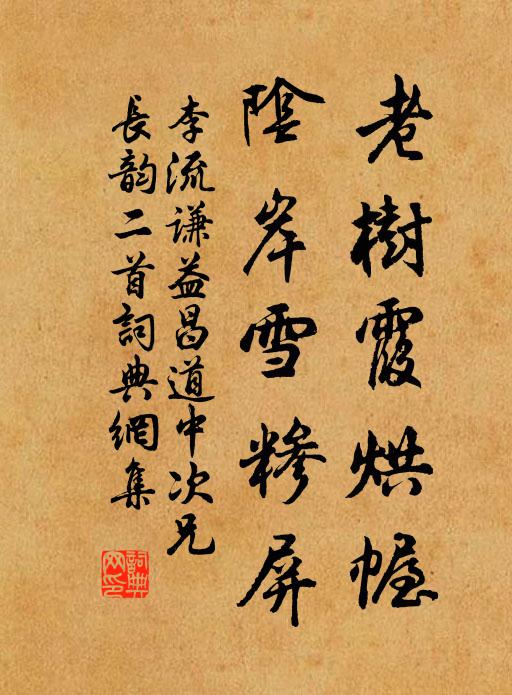 老樹霞烘幄
陰岸雪糝屏
李流謙益昌道中次兄
長韵二首詞典網集
詞典
网印